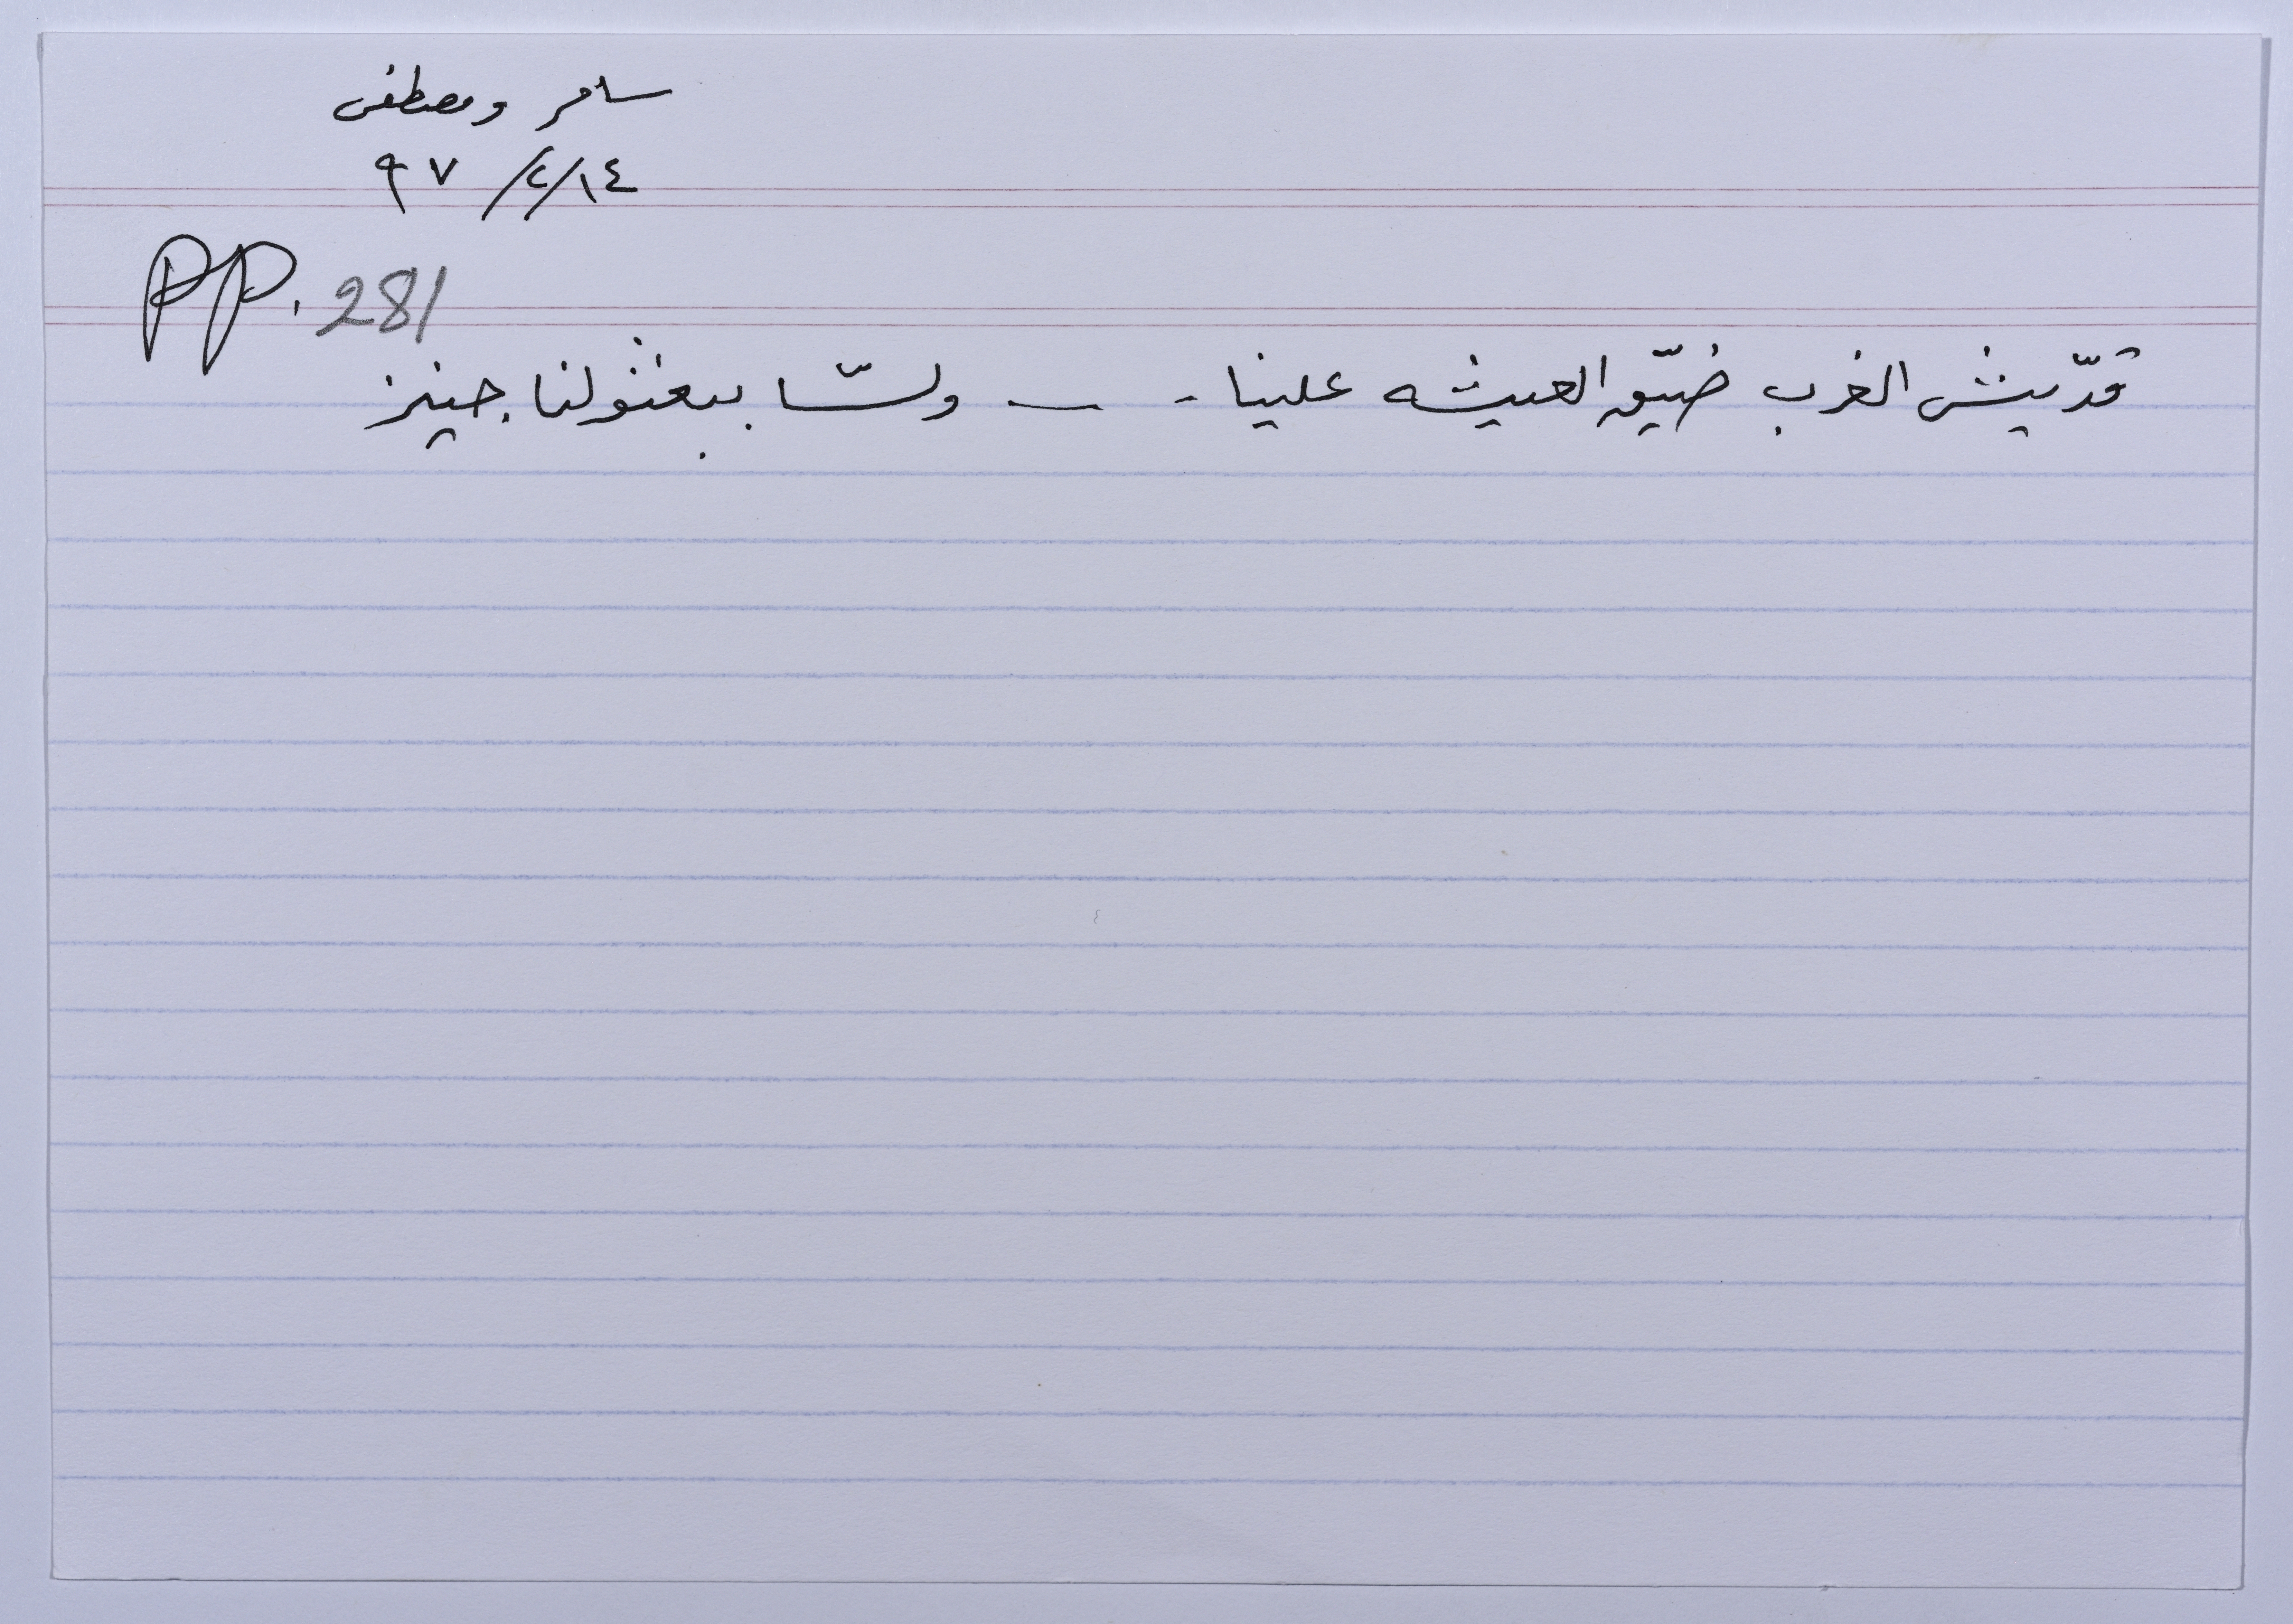 سامر ومصطفى
١٤/٢/٩٧
PP. 281
قدّيش الغرب ضيّق العيشه علينا - — ولسّا بيبعثولنا جينز